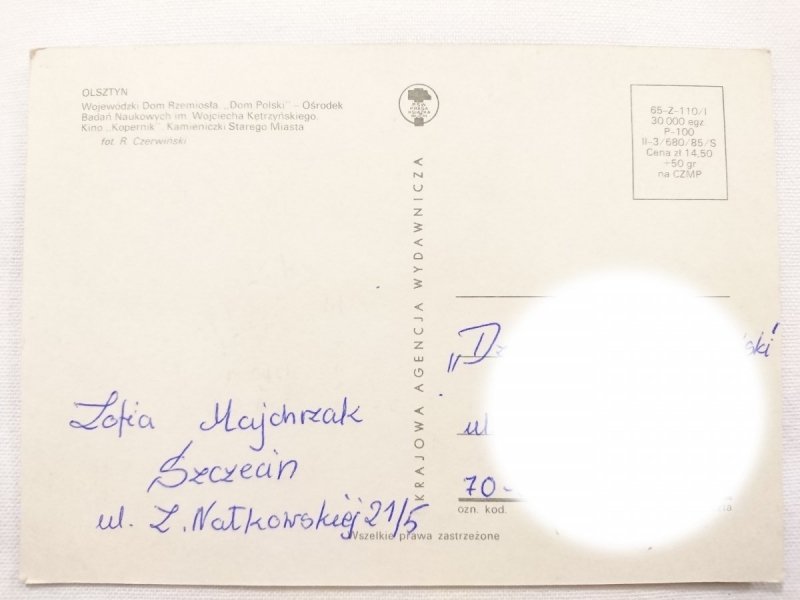 OLSZTYN
Wojewódzki Dom Rzemiosła. „Dom Polski" – Ośrodek
Badań Naukowych im. Wojciecha Kętrzyńskiego.
Kino „Kopernik". Kamieniczki Starego Miasta
fot. R. Czerwiński
Zofia Majchrzak
Szczecin
ul. Z. Nałkowskiej 21/5
KRAJOWA AGENCJA WYDAWNICZA
65-Z-110/I
30.000 egz.
P-100
II-3/680/85/S
Cena zł 14,50
+50 gr
na CZMP
ul
70-
ozn. kod.
Wszelkie prawa zastrzeżone